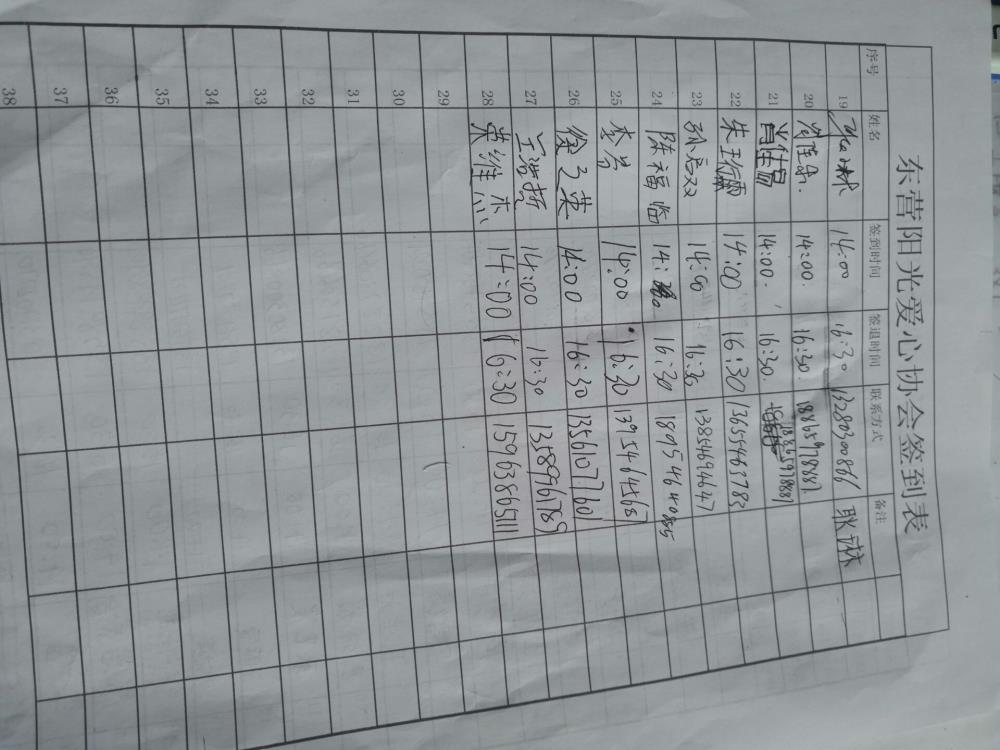 东营阳光爱心协会签到表
序号 姓名 签到时间 签退时间 联系方式 备注
19 14:00 16:30 13280300866 耿琳
20 14:00. 16:30. 18865978887
21 肖佳易 14:00. 16:30. 18865978887
22 朱珩霈 14:00 16:30 13654463783
23 孙元双 14:00 16:30 13854694647
24 陈福临 14: 16:30 18954640855
25 李芳 14:00 16:30 13954645687
26 徐之英 14:00 16:30 13561077601
27 14:00 16:30 1358996789
28 英维杰 14:00 16:30 15963865111
29
30
31
32
33
34
35
36
37
38